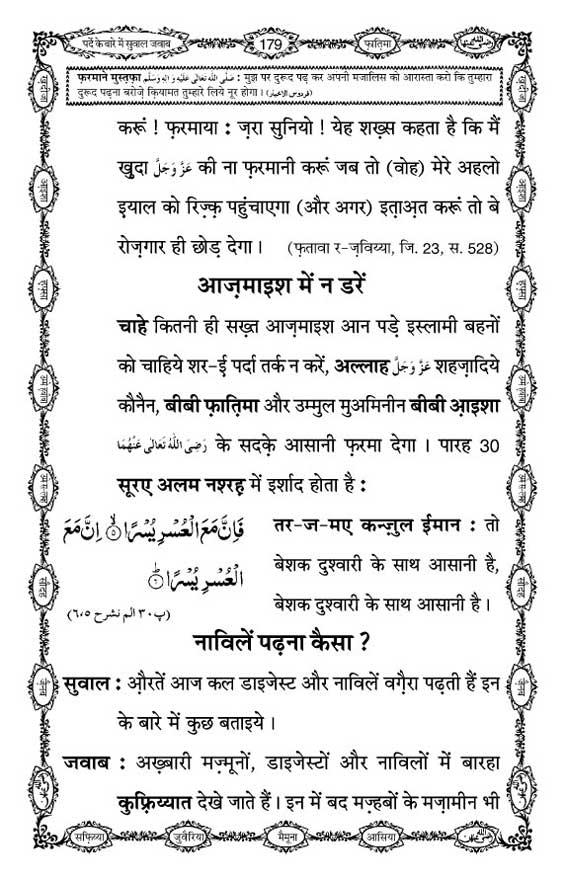 पर्दे के बारे में सुवाल जवाब
179
फ़ातिमा
फ़रमाने मुस्तफ़ा صَلَّى اللهُ تَعَالٰى عَلَيْهِ وَاٰلِهٖ وَسَلَّم : मुझ पर दुरूद पढ़ कर अपनी मजालिस को आरास्ता करो कि तुम्हारा
दुरूद पढ़ना बरोज़े क़ियामत तुम्हारे लिये नूर होगा। (فردوس الاخبار)
करूं ! फ़रमाया : ज़रा सुनियो ! येह शख़्स कहता है कि मैं
ख़ुदा عَزَّ وَجَلَّ की ना फ़रमानी करूं जब तो (वोह) मेरे अहलो
इयाल को रिज़्क़ पहुंचाएगा (और अगर) इत़ाअ़त करूं तो बे
रोज़गार ही छोड़ देगा। (फ़तावा र-ज़विय्या, जि. 23, स. 528)
आज़माइश में न डरें
चाहे कितनी ही सख़्त आज़माइश आन पड़े इस्लामी बहनों
को चाहिये शर-ई पर्दा तर्क न करें, अल्लाह عَزَّ وَجَلَّ शहज़ादिये
कौनैन, बीबी फ़ातिमा और उम्मुल मुअमिनीन बीबी आ़इशा
رَضِىَ اللهُ تَعَالٰى عَنْهُمَا के सदक़े आसानी फ़रमा देगा । पारह 30
सूरए अलम नश्रह़ में इर्शाद होता है :
فَاِنَّ مَعَ الْعُسْرِ يُسْرًا ۙ﴿۵﴾ اِنَّ مَعَ
الْعُسْرِ يُسْرًا ؕ﴿۶﴾
(پ۳۰ الم نشرح ۶،۵)
तर-ज-मए कन्ज़ुल ईमान : तो
बेशक दुश्वारी के साथ आसानी है,
बेशक दुश्वारी के साथ आसानी है।
नाविलें पढ़ना कैसा ?
सुवाल : औ़रतें आज कल डाइजेस्ट और नाविलें वग़ैरा पढ़ती हैं इन
के बारे में कुछ बताइये ।
जवाब : अख़्बारी मज़्मूनों, डाइजेस्टों और नाविलों में बारहा
कुफ़्रिय्यात देखे जाते हैं। इन में बद मज़्हबों के मज़ामीन भी
सफ़िय्या
जुवैरिया
मैमूना
आसिया